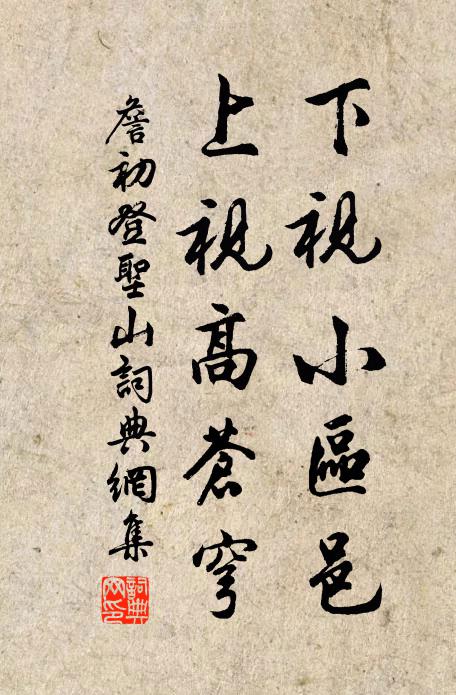 下視小區邑
上視高蒼穹
詹初登聖山詞典網集